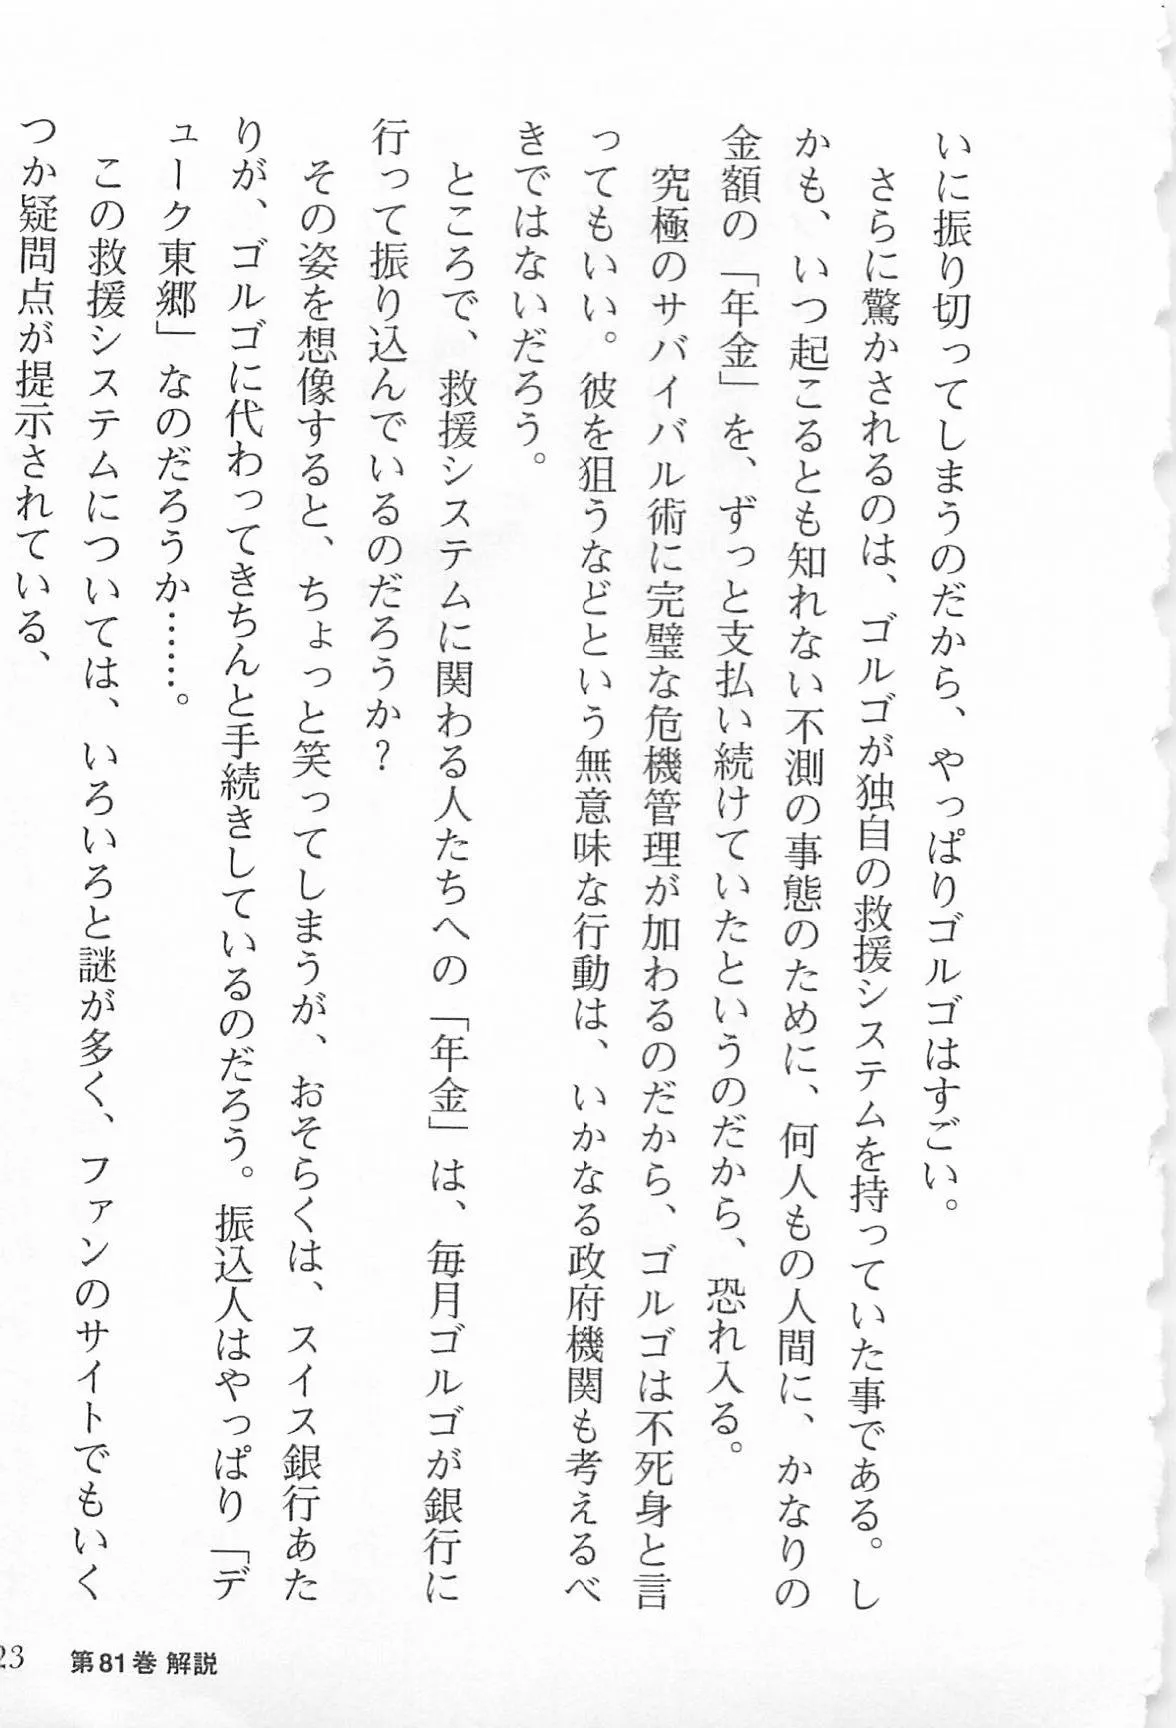 いに振り切ってしまうのだから、やっぱりゴルゴはすごい。
さらに驚かされるのは、ゴルゴが独自の救援システムを持っていた事である。し
かも、いつ起こるとも知れない不測の事態のために、何人もの人間に、かなりの
金額の「年金」を、ずっと支払い続けていたというのだから、恐れ入る。
究極のサバイバル術に完璧な危機管理が加わるのだから、ゴルゴは不死身と言
ってもいい。彼を狙うなどという無意味な行動は、いかなる政府機関も考えるべ
きではないだろう。
ところで、救援システムに関わる人たちへの「年金」は、毎月ゴルゴが銀行に
行って振り込んでいるのだろうか？
その姿を想像すると、ちょっと笑ってしまうが、おそらくは、スイス銀行あた
りが、ゴルゴに代わってきちんと手続きしているのだろう。振込人はやっぱり「デ
ューク東郷」なのだろうか……。
この救援システムについては、いろいろと謎が多く、ファンのサイトでもいく
つか疑問点が提示されている、
23 第81巻 解説